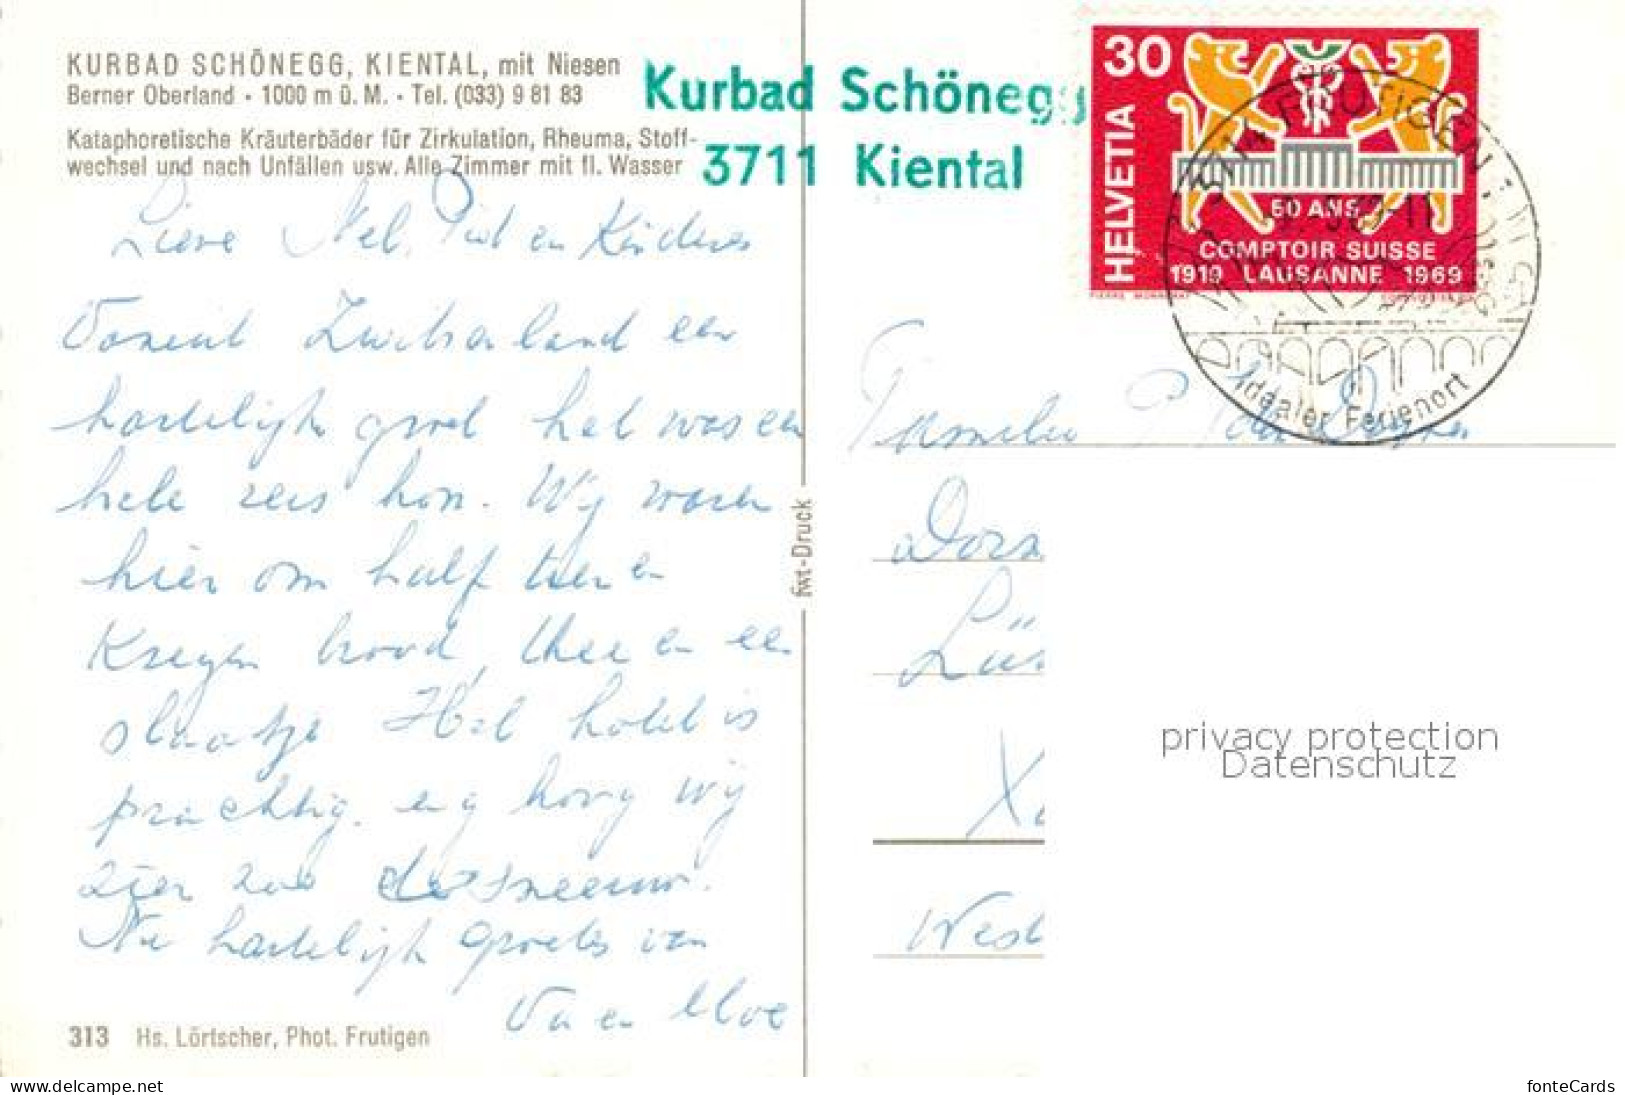 KURBAD SCHÖNEGG, KIENTAL, mit Niesen
Berner Oberland • 1000 m ü. M. • Tel. (033) 9 81 83
Kataphoretische Kräuterbäder für Zirkulation, Rheuma, Stoff-
wechsel und nach Unfällen usw. Alle Zimmer mit fl. Wasser
Kurbad Schönegg
3711 Kiental
30
HELVETIA
50 ANS
COMPTOIR SUISSE
1919 LAUSANNE 1969
3714 FRUTIGEN
Idealer Ferienort
Lieve Nel, Piet en Kinderen
Vanuit Zwitserland een
hartelijk groet het was een
hele reis hoor. Wij waren
hier om half tien en
Kregen brood, thee en een
slaatje Het hotel is
prachtig. en
zien de sneeuw.
Nu hartelijk groetes van
Va en Moe
fwt-Druck
Familie P.
Dorn
Lün
West
313 Hs. Lörtscher, Phot. Frutigen
privacy protection
Datenschutz
www.delcampe.net
fonteCards